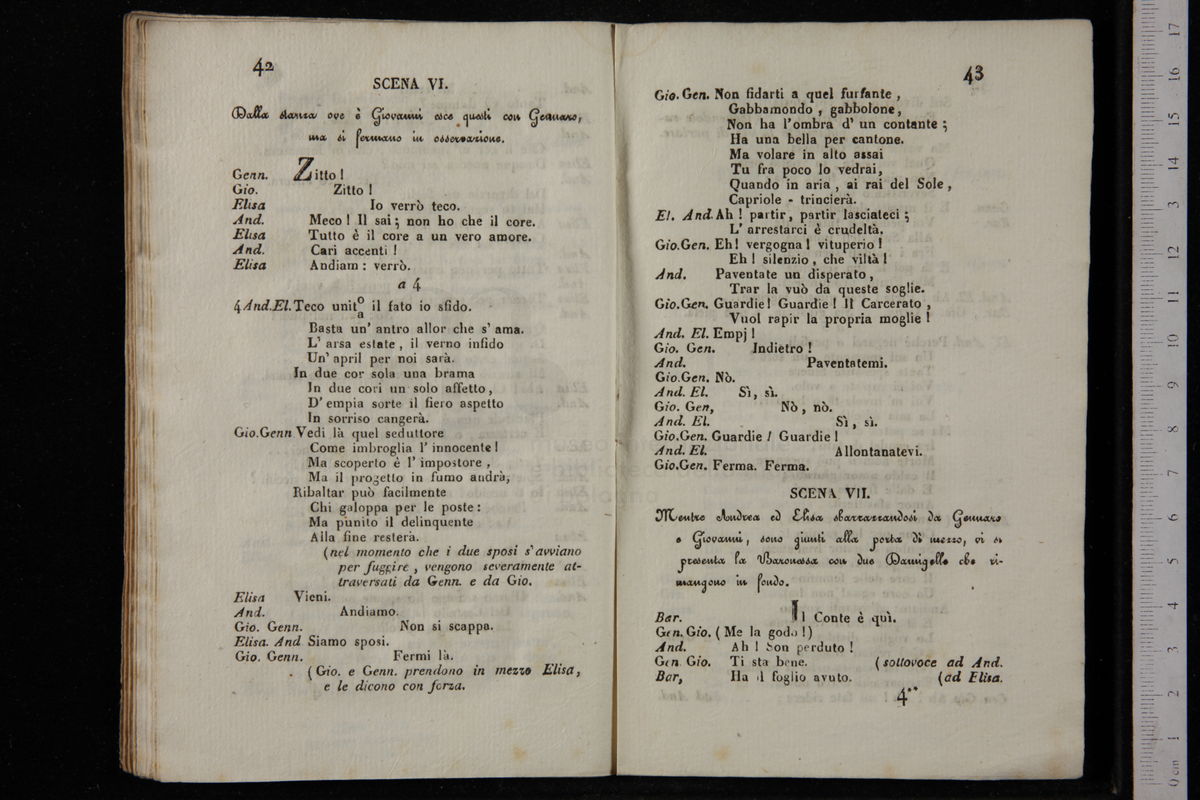 42
SCENA VI.
Dalla stanza ove è Giovanni esce questi con Gennaro,
ma si fermano in osservazione.
Genn. Zitto !
Gio. Zitto !
Elisa Io verrò teco.
And. Meco ! Il sai ; non ho che il core.
Elisa Tutto è il core a un vero amore.
And. Cari accenti !
Elisa Andiam : verrò.
a 4
4 And.El. Teco unit o/a il fato io sfido.
Basta un' antro allor che s' ama.
L' arsa estate , il verno infido
Un' april per noi sarà.
In due cor sola una brama
In due cori un solo affetto ,
D' empia sorte il fiero aspetto
In sorriso cangerà.
Gio.Genn Vedi là quel seduttore
Come imbroglia l' innocente !
Ma scoperto è l' impostore ,
Ma il progetto in fumo andrà;
Ribaltar può facilmente
Chi galoppa per le poste :
Ma punito il delinquente
Alla fine resterà.
(nel momento che i due sposi s' avviano
per fuggire , vengono severamente at-
traversati da Genn. e da Gio.
Elisa Vieni.
And. Andiamo.
Gio. Genn. Non si scappa.
Elisa. And Siamo sposi.
Gio. Genn. Fermi là.
( Gio. e Genn. prendono in mezzo Elisa,
e le dicono con forza.
43
Gio. Gen. Non fidarti a quel furfante ,
Gabbamondo , gabbolone ,
Non ha l' ombra d' un contante ;
Ha una bella per cantone.
Ma volare in alto assai
Tu fra poco lo vedrai,
Quando in aria , ai rai del Sole ,
Capriole - trincierà.
El. And. Ah ! partir, partir lasciateci ;
L' arrestarci è crudeltà.
Gio.Gen. Eh! vergogna ! vituperio !
Eh ! silenzio , che viltà !
And. Paventate un disperato ,
Trar la vuò da queste soglie.
Gio.Gen. Guardie! Guardie ! Il Carcerato ,
Vuol rapir la propria moglie !
And. El. Empj !
Gio. Gen. Indietro !
And. Paventatemi.
Gio.Gen. Nò.
And. El. Sì, sì.
Gio. Gen, Nò , nò.
And. El. Sì , sì.
Gio.Gen. Guardie ! Guardie !
And. El. Allontanatevi.
Gio.Gen. Ferma. Ferma.
SCENA VII.
Mentre Andrea ed Elisa sbarrazzandosi da Gennaro
e Giovanni, sono giunti alla porta di mezzo, vi si
presenta la Baronessa con due Damigelle che ri-
mangono in fondo.
Bar. Il Conte è quì.
Gen. Gio. ( Me la godo !)
And. Ah ! Son perduto !
Gen Gio. Ti sta bene. (sottovoce ad And.
Bar, Ha il foglio avuto. (ad Elisa.
4**